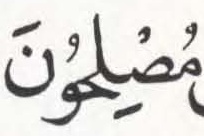 مُصْلِحُونَ